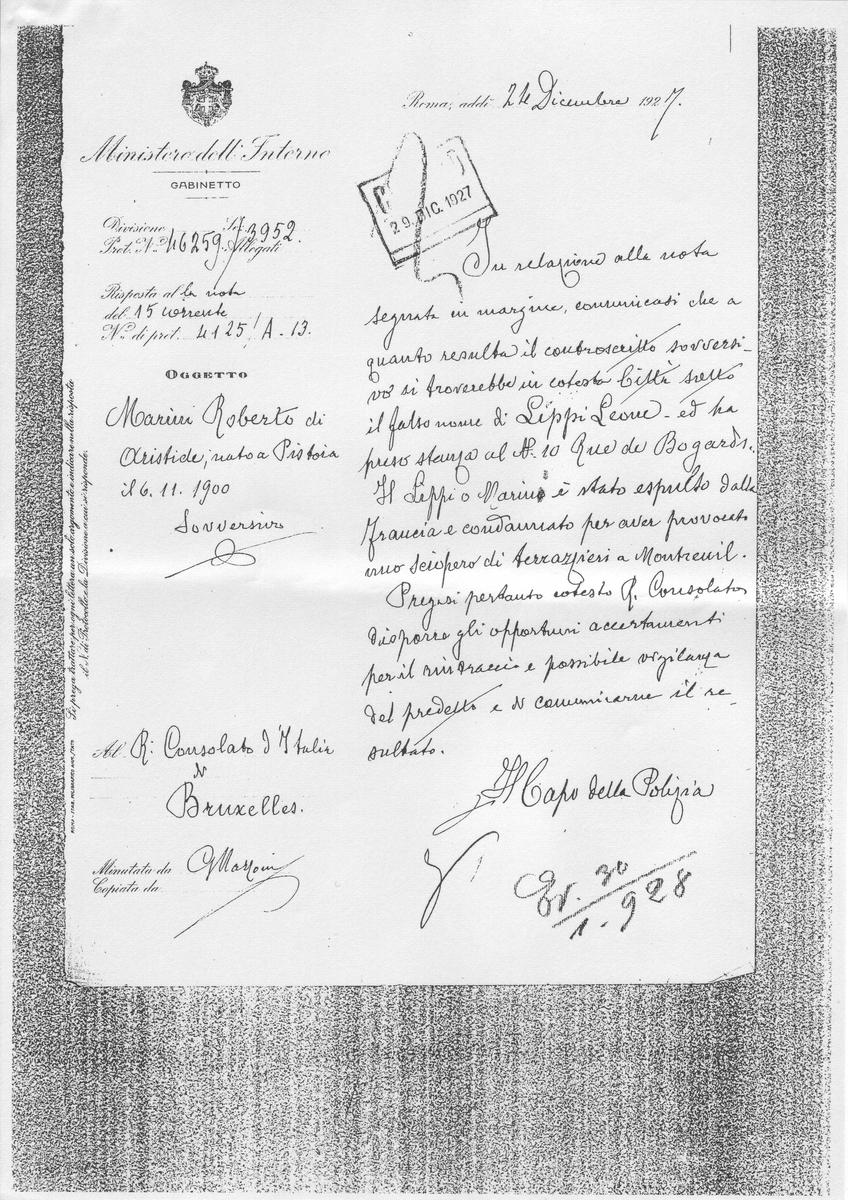 Roma, addì 24 Dicembre 1927.
Ministero dell'Interno
GABINETTO
Divisione Sez.
Prot. N.º 46259/3952. Allegati
Risposta al la nota
del 15 corrente
N.º di prot. 4125/A-13.
OGGETTO
Marini Roberto di
Aristide, nato a Pistoia
il 6.11.1900
Sovversivo
29. DIC. 1927
In relazione alla nota
segnata in margine, comunicasi che a
quanto resulta il controscritto sovversi-
vo si troverebbe in cotesta Città sotto
il falso nome di Lippi Leone - ed ha
preso stanza al N. 10 Rue de Bogards.
Il Lippi o Marini è stato espulso dalla
Francia e condannato per aver provocato
uno sciopero di terrazzieri a Montreuil.
Pregasi pertanto cotesto R. Consolato
disporre gli opportuni accertamenti
per il rintraccio e possibile vigilanza
del predetto e di comunicarne il re-
sultato.
Il Capo della Polizia
Al R. Consolato d'Italia
di
Bruxelles.
Minutata da
Copiata da
30
1-928
Si prega trattare per ogni lettera un solo argomento e indicare nella risposta
il N. di Protocollo e la Divisione a cui si risponde.